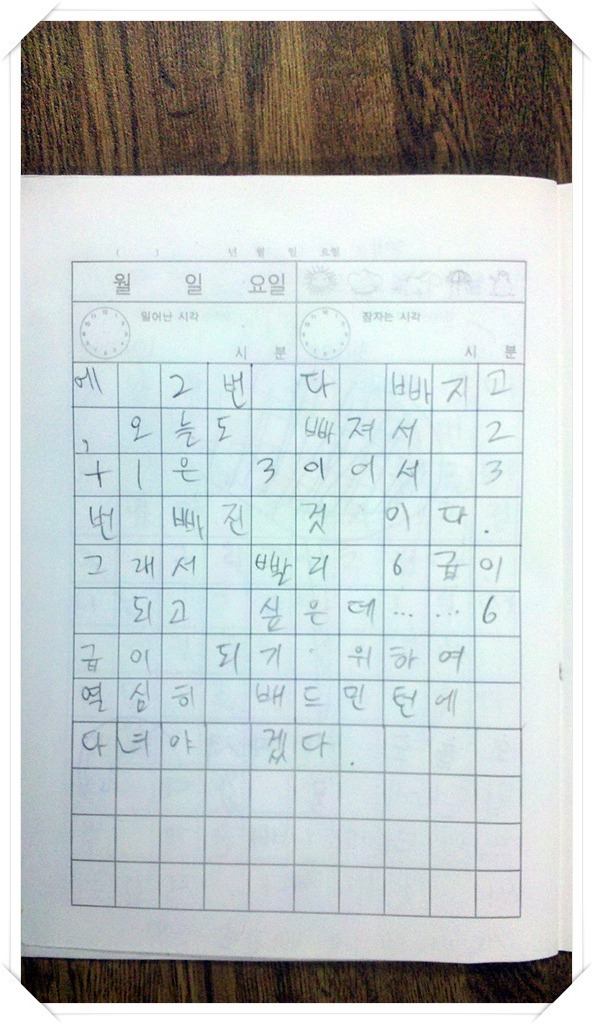 ( ) 년 월 일 요일
월 일 요일
일어난 시각 잠자는 시각
시 분 시 분
에 2번 다 빠지고
, 오늘도 빠져서 2
+1은 3이어서 3
번 빠진 것 이다.
그래서 빨리 6급이
되고 싶은데…… 6
급이 되기 위하여
열심히 배드민턴에
다녀야 겠다.